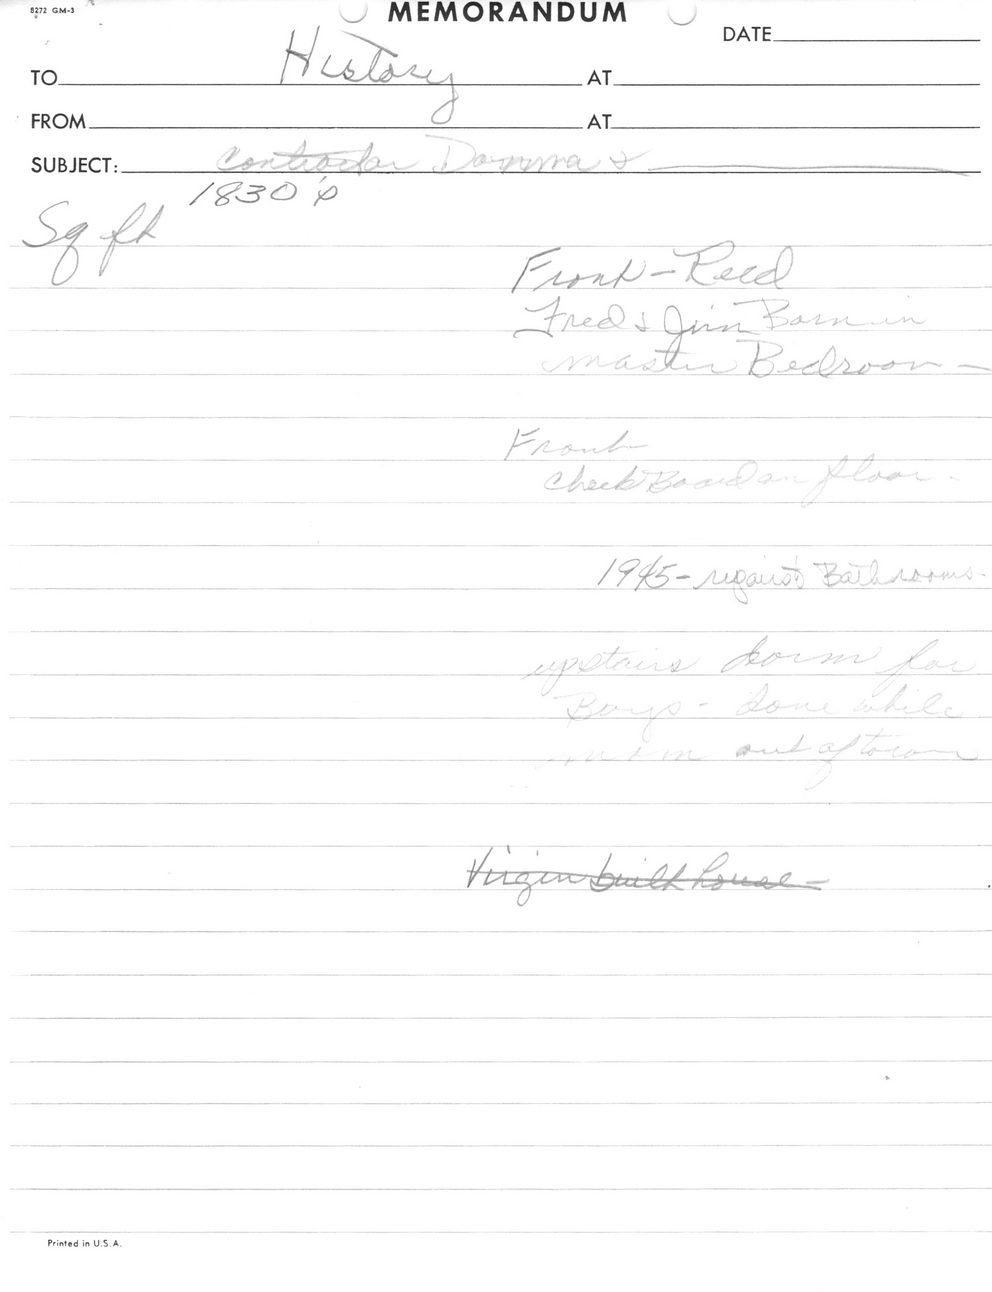 8272 GM-3
MEMORANDUM
DATE
TO History AT
FROM AT
SUBJECT: Contractor &
1830's
Sq ft
Frank - Reed
Fred & Jim Born in
master Bedroom -
Frank
Check Board on floor.
1945 - Bathrooms.
upstairs dorm for
Boys - done while
out of town
Virgin built house -
Printed in U.S.A.